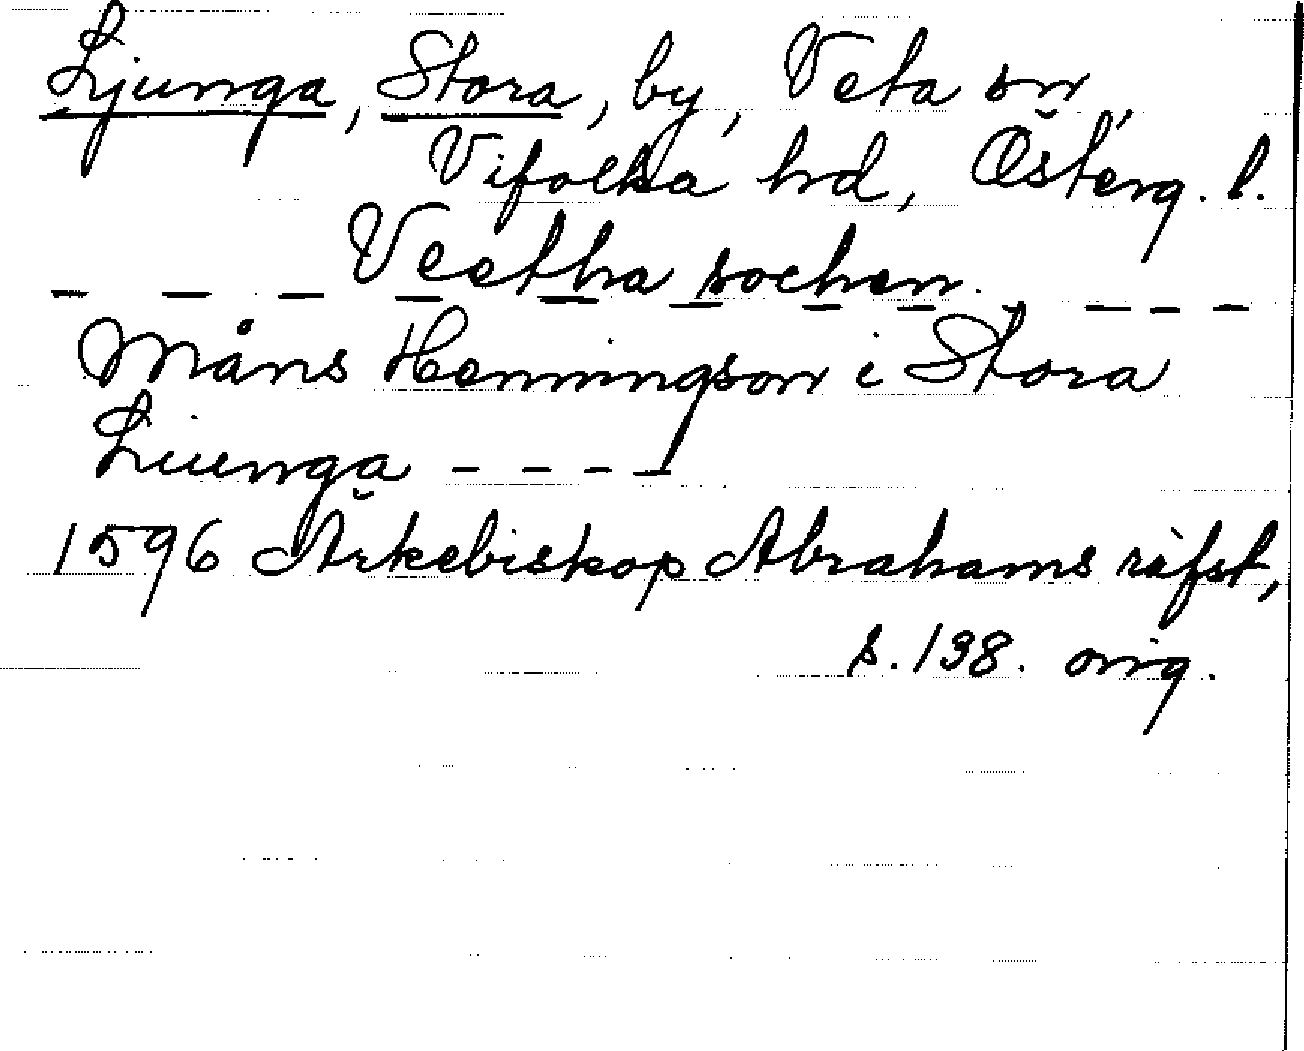 Ljunga, Stora, by, Veta sn,
Vifolka hd, Österg. l.
– – – Veetha sochen. – – –
Måns Henningson i Stora
Liunga – – – –
1596 Ärkebiskop Abrahams räfst,
s. 138. orig.